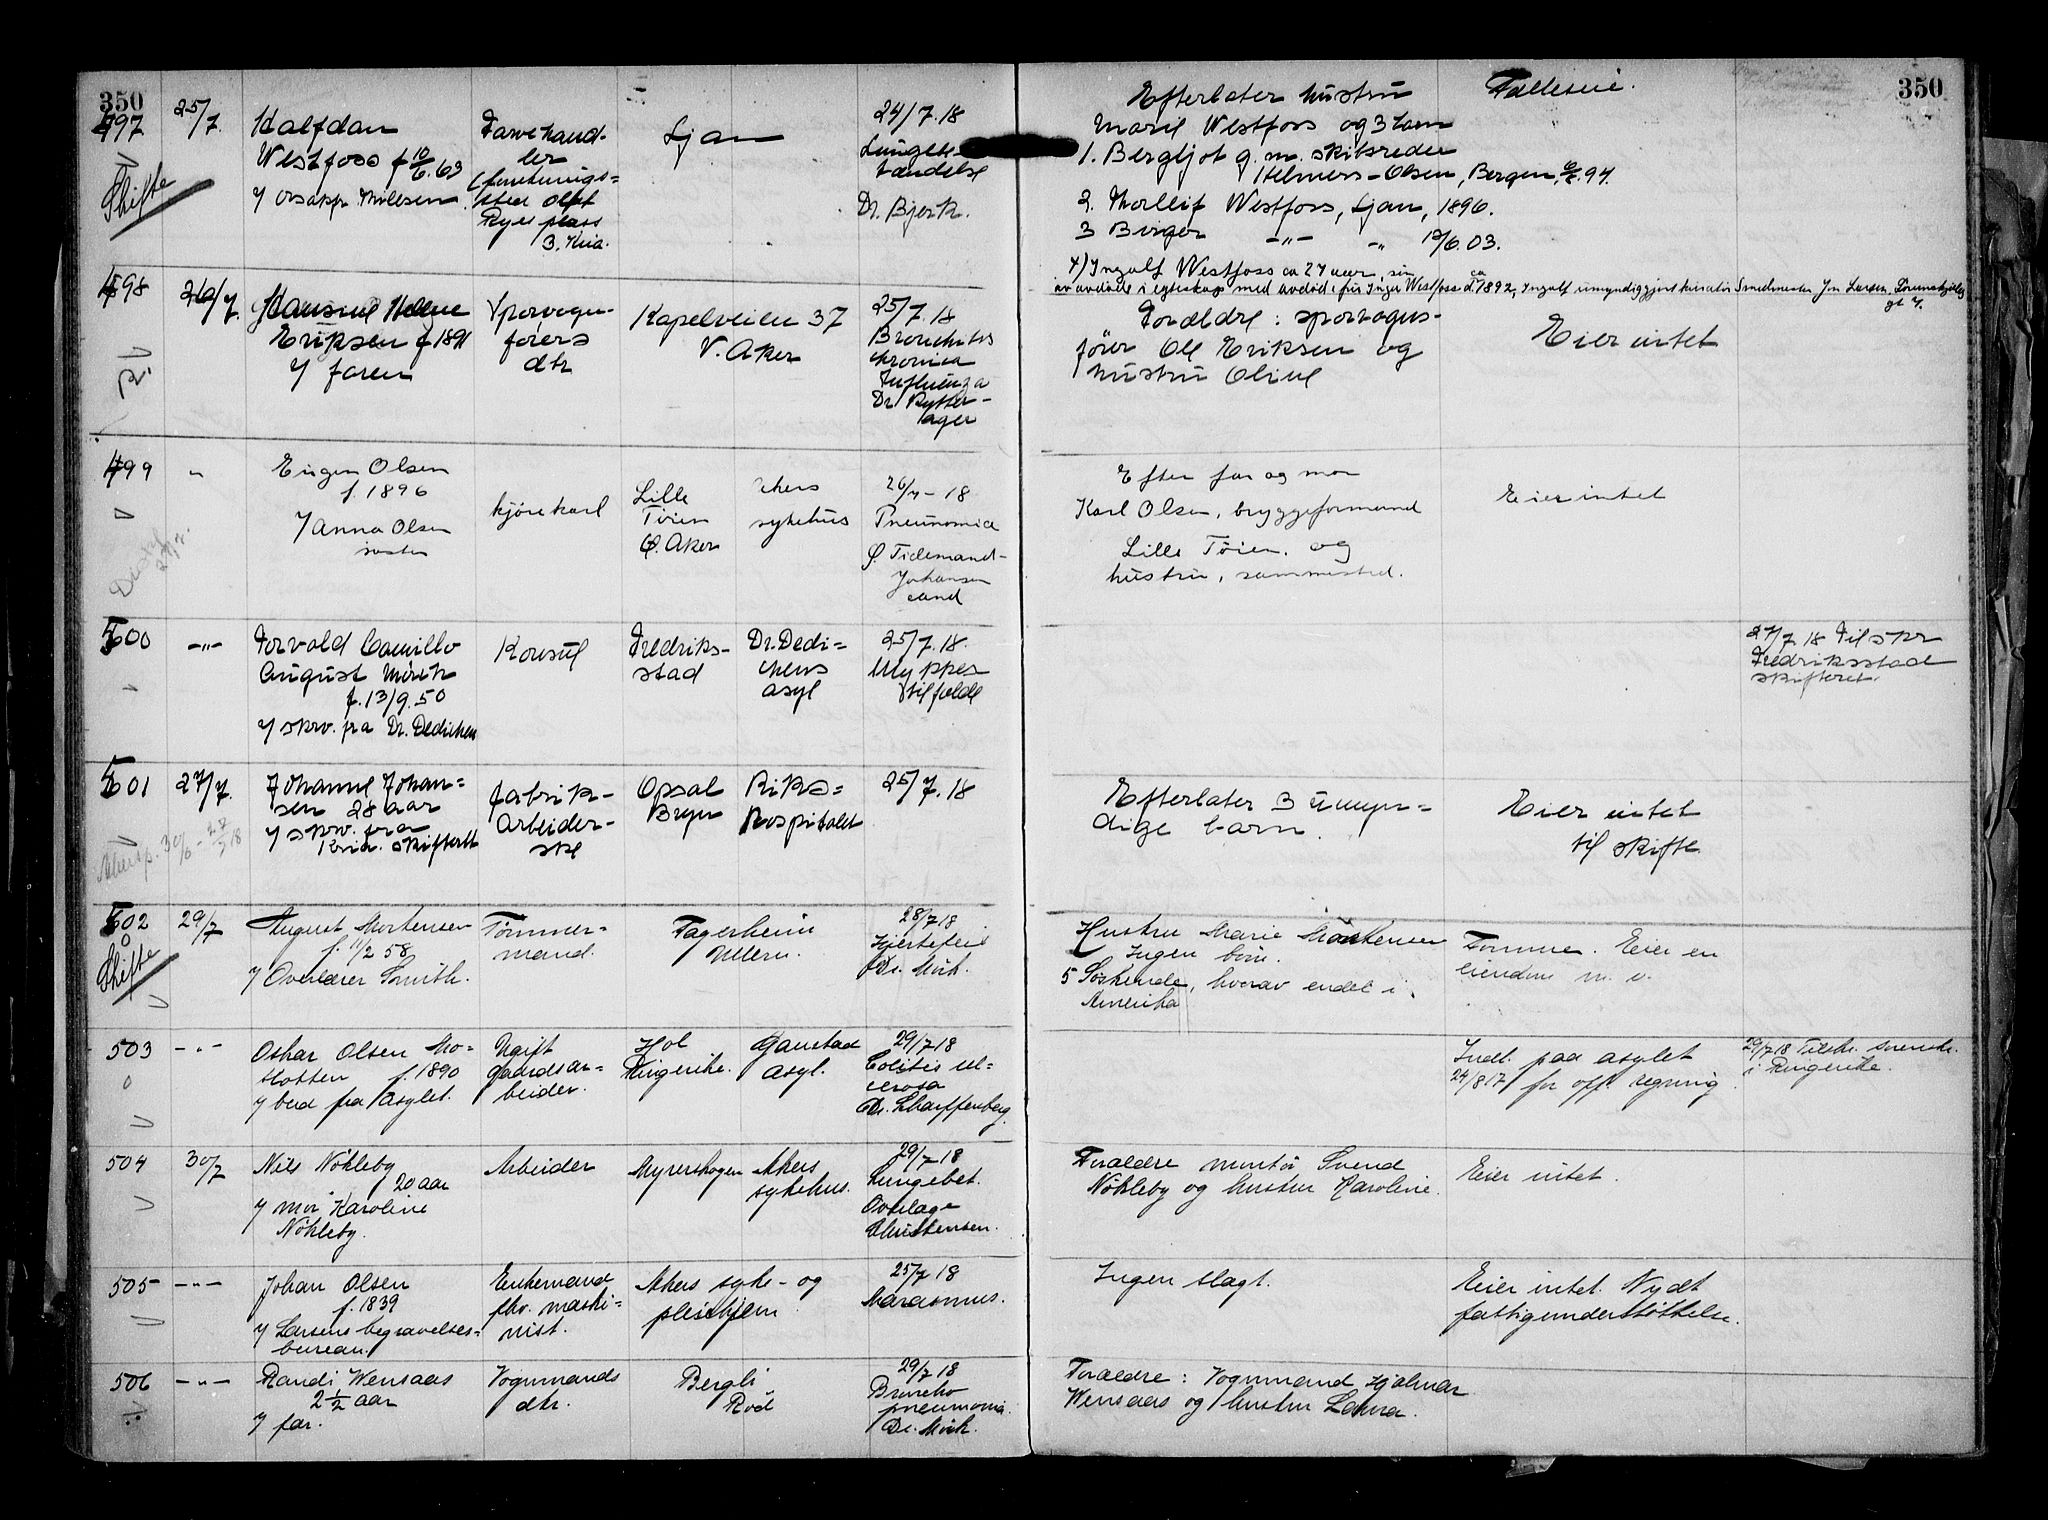 350
497
25/7.
Halfdan
Westfoss f 10/6.63
Farvehand-
ler
Ljan
24/7.18
Lungebe-
tændelse
Dr. Bjerk.
Skifte
plass
3. Kria.
Efterlater hustru
Marie Westfoss og 3 barn
1. Bergljot g. m. skibsreder
Olsen, Bergen, 94.
2. Thorleif Westfoss, Ljan, 1896.
3 Birger -"- -"- 12/6.03.
4) Ingolf Westfoss ca 27 aar, sin
av avdøde i egteskap med avdøde fru Inga Westfoss d. 1892, Ingolf umyndiggjort kurator Smedmester Jn Larsen,
Fælleseie.
350
498
26/7.
Eriksen f 1891
y faren
Sporvogns-
førers
dtr
Kapelveien 37
V. Aker
25/7.18
Bronchitis
kronica
Influenza
Dr. Rytter-
ager
Forældre: sporvogns-
fører Ole Eriksen og
hustru Oline
Eier intet
499
"
Eugen Olsen
f. 1896
y Anna Olsen
søster
kjørekarl
Lille
Tøien
Ø. Aker
Akers
sykehus
26/7 - 18
Pneumonia
Ø. Tidemand-
Johansen
cand
Efter far og mor
Karl Olsen, bryggeformand
Lille Tøien. og
hustru, sammested.
Eier intet
500
-"-
Torvald Camillo
August
f. 13/9.50
y skrv. fra Dr. Dedichen
Konsul
Fredriks-
stad
Dr. Dedi=
chens
asyl
25/7.18.
Ulykkes
tilfælde
27/7 18 Tilskr
Fredriksstad
skifteret.
501
27/7.
Johanne Johan=
sen 28 aar
y skrv. fra
Kria. skifterett
fabrik-
arbeider-
ske
Opsal
Bryn
Riks=
hospitalet
25/7.18
Efterlater 3 umyn=
dige barn.
Eier intet
til skifte.
502
Skifte
29/7
August Mortensen
f. 11/2 58
y Overlærer Smith.
Tømmer-
mand.
Fagerheim
Ullern.
28/7 18
Hjertefeil
Dr. Mørk.
Hustru Marie Mortensen
Ingen børn.
5 Søskende, hvorav endel i
Amerika
Formue. Eier en
eiendom m. v.
503
-"-
Oskar Olsen Mo-
slotten f. 1890
y bud fra Asylet.
Ugift
gaardsar=
beider.
Hol
Ringerike.
Gaustad
Asyl.
29/7 18
Colitis ul=
cerosa
Dr. Scharffenberg.
Indl. paa asylet
24/8 17 for off. regning
29/7 18 Tilskr. svensk.
i Ringerike.
504
30/7
Nils Nøkleby
20 aar
y mor Karoline
Nøkleby.
Arbeider
Myrerskogen
Akers
sykehus.
29/7 18
Lungebet.
Overlæge
Christensen.
Forældre murtør Svend
Nøkleby og hustru Karoline.
Eier intet.
505
-"-
Johan Olsen
f. 1839
y Larsens begravelses=
bureau.
Enkemand
fhv. maski=
nist.
Akers syke- og
pleiehjem
25/7 18
Marasmus.
Ingen slægt.
Eier intet. Nydt
fattigunderstøttelse.
506
-"-
Randi Wensaas
2 1/2 aar
y far.
Vognmands
dtr.
Bergli
Røa
29/7 18
Broncho
pneumonia.
Dr. Mørk.
Forældre: Vognmand Hjalmar
Wensaas og hustru Laura.